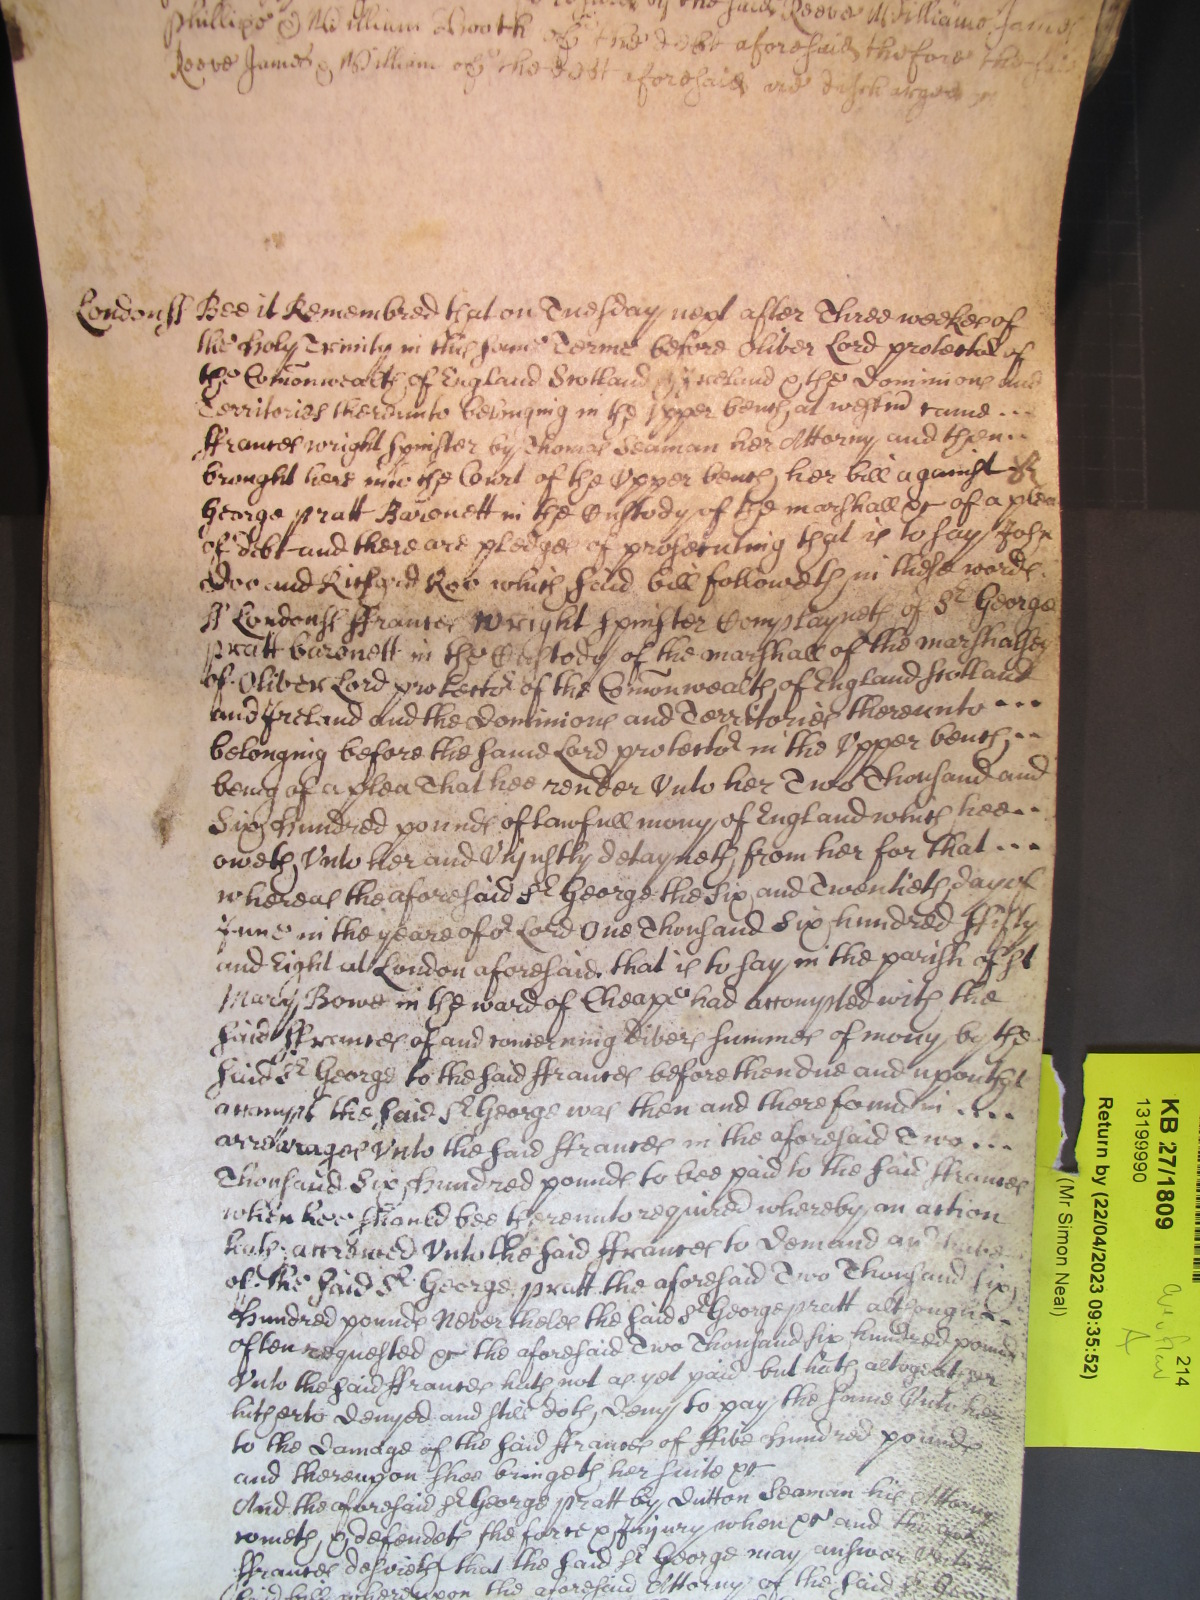 of the said Reeve Williams James
Phillipps & William Booth of the debt aforesaid therfore the said
Reeve James & William of the debt aforesaid are discharged
Londonss Bee it Remembred that on Tuesday next after Three weekes of
the Holy Trinity in this same Terme before Oliver Lord protector of
the Comonwealth of England Scotland & Ireland & the Dominions and
Territories thereunto belonging in the Upper bench at westmr came ...
ffrances wright spinster by Thomas Seaman her Attorny and then ..
brought here into the Court of the Upper bench her bill against Sr
George pratt Baronett in the Custody of the marshall &c of a plea
of debt and there are pledges of prosecuting that is to say John
Doo and Richard Roo which said bill followeth in these words
ss Londonss ffrances Wright spinster Complayneth of Sr George
pratt baronett in the Custody of the marshall of the marshallsey
of Oliver Lord protector of the Comonwealth of England Scotland
and Ireland and the Dominions and Territories thereunto ...
belonging before the same Lord protector in the Upper bench ..
being of a plea That hee render Unto her Two Thousand and
Six hundred pounds of lawfull mony of England which hee ..
oweth Unto her and Unjustly detayneth from her for that ...
whereas the aforesaid Sr George the Six and Twentieth day of
June in the yeare of or Lord One Thousand Six hundred ffifty
and Eight at London aforesaid that is to say in the parish of St
Mary Bowe in the ward of Cheape had accompted with the
said ffrances of and concerning divers summes of mony by the
said Sr George to the said ffrances before then due and upon that
accompt the said Sr George was then and there found in ....
arrerages Unto the said ffrances in the aforesaid Two ...
Thousand Six Hundred pounds to bee paid to the said ffrances
when hee should bee thereunto required whereby an action
hath accrewed Unto the said ffrances to demand and have
of the said Sr George pratt the aforesaid Two Thousand Six
Hundred pounds Neverthelesse the said Sr George pratt although ..
often requested &c the aforesaid Two Thousand six hundred pounds
Unto the said ffrances hath not as yet paid but hath altogether
hitherto denyed and still doth deny to pay the same Unto her
to the damage of the said ffrances of ffive Hundred pounds
and thereupon shee bringeth her suite &c
And the aforesaid Sr George pratt by Dutton Seaman his Attorny
cometh & defendeth the force & Injury when &c and the said
ffrances desireth that the said Sr George may answer Unto
said bill whereupon the aforesaid Attorny of the said Sr George
KB 27/1809
13199990
214
Return by (22/04/2023 09:35:52)
(Mr Simon Neal)